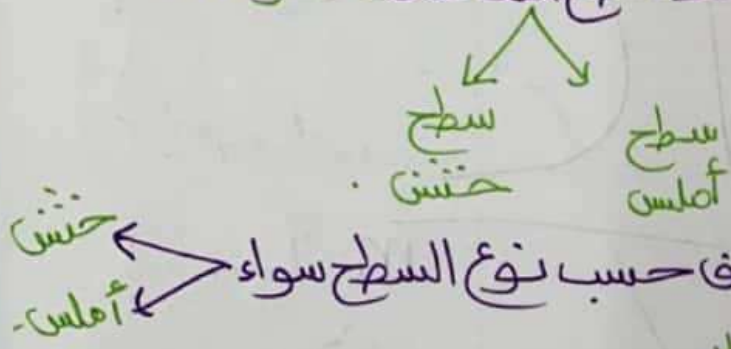 سطح أملس
سطح خشن .
حسب نوع السطح سواء
خشن
أملس.